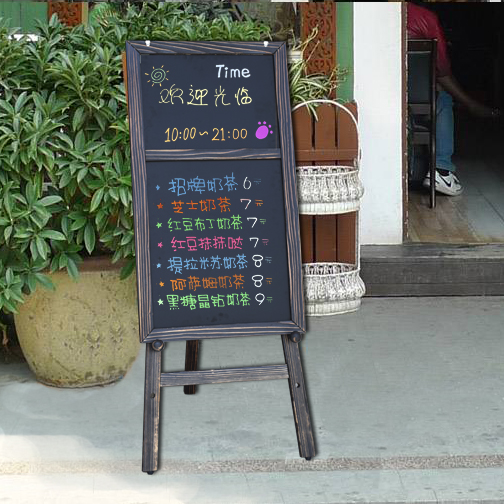 Time
欢迎光临
10:00～21:00
招牌奶茶 6元
芝士奶茶 7元
红豆布丁奶茶 7元
红豆抹抹哒 7元
提拉米苏奶茶 8元
阿萨姆奶茶 8元
黑糖晶钻奶茶 9元